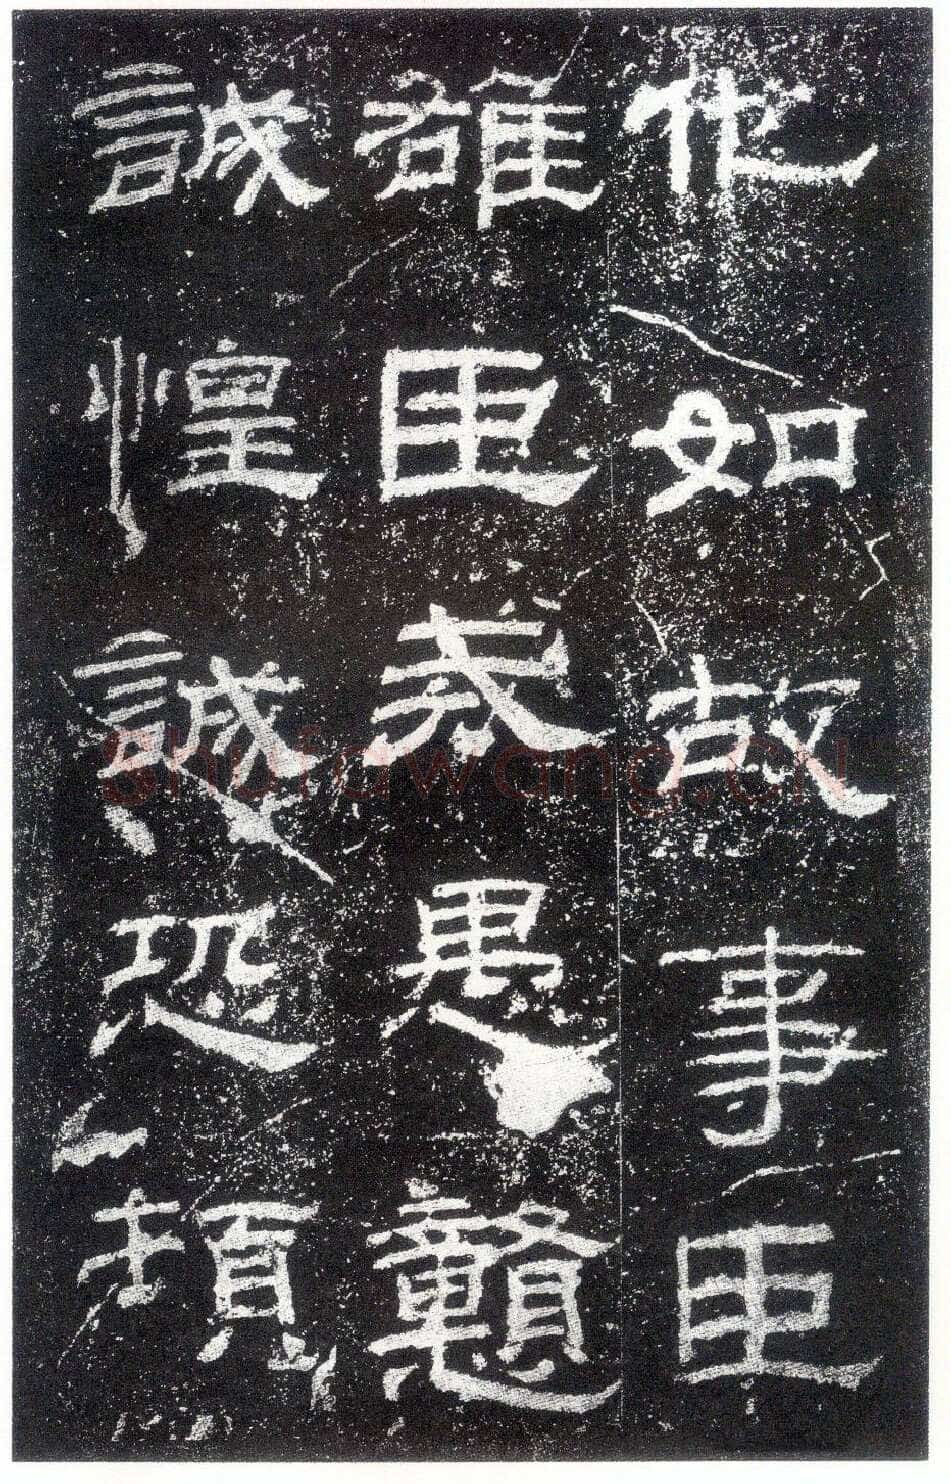 他如故事臣
雄臣戒愚戇
誠惶誠恐頓
shufawang.cn